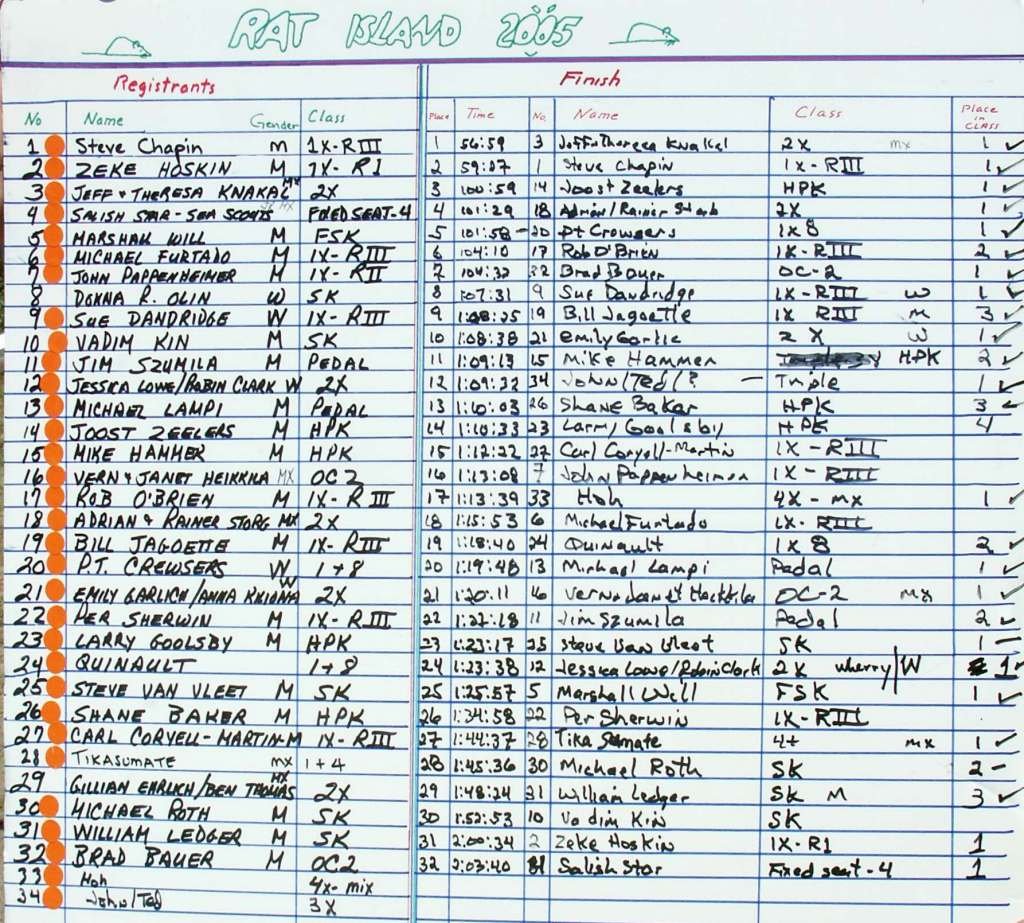 RAT ISLAND 2005
Registrants
No Name Gender Class
1 Steve Chapin M 1X-RIII
2 ZEKE HOSKIN M 1X-R1
3 JEFF & THERESA KNAKAL MX 2X
4 SALISH STAR-SEA SCOUTS MX FIXED SEAT-4
5 MARSHALL WILL M FSK
6 MICHAEL FURTADO M 1X-RIII
7 JOHN PAPPENHEIMER M 1X-RII
8 DONNA R. OLIN W SK
9 SUE DANDRIDGE W 1X-RIII
10 VADIM KIN M SK
11 JIM SZUMILA M PEDAL
12 JESSICA LOWE/ROBIN CLARK W 2X
13 MICHAEL LAMPI M PEDAL
14 JOOST ZEELERS M HPK
15 MIKE HAMMER M HPK
16 VERN & JANET HEIKKILA MX OC2
17 ROB O'BRIEN M 1X-RIII
18 ADRIAN & RAINER STORB MX 2X
19 BILL JAGOETTE M 1X-RIII
20 P.T. CREWSERS W 1+8
21 EMILY GARLICH/ANNA W 2X
22 PER SHERWIN M 1X-RIII
23 LARRY GOOLSBY M HPK
24 QUINAULT 1+8
25 STEVE VAN VLEET M SK
26 SHANE BAKER M HPK
27 CARL CORYELL-MARTIN-M 1X-RIII
28 TIKASUMATE MX 1+4
29 GILLIAN EHRLICH/BEN THOMAS MX 2X
30 MICHAEL ROTH M SK
31 WILLIAM LEDGER M SK
32 BRAD BAUER M OC2
33 Hoh 4X-mix
34 John/Ted 3X
Finish
Place Time No. Name Class Place in CLASS
1 56:59 3 Jeff & Theresa Knakal 2X mx 1 ✓
2 59:07 1 Steve Chapin 1X-RIII 1 ✓
3 100:59 14 Joost Zeelers HPK 1 ✓
4 101:29 18 Adrian/Rainer Storb 2X 1 ✓
5 101:58 20 Pt Crewsers 1X8 1 ✓
6 104:10 17 Rob O'Brien 1X-RIII 2 ✓
7 104:32 32 Brad Bauer OC-2 1 ✓
8 107:31 9 Sue Dandridge 1X-RIII W 1 ✓
9 1:08:25 19 Bill Jagoette 1X RIII M 3 ✓
10 1:08:38 21 emily Garlic 2X W 1 ✓
11 1:09:13 15 Mike Hammer HPK 2 ✓
12 1:09:32 34 John/Ted/? - Triple 1 ✓
13 1:10:03 26 Shane Baker HPK 3 ✓
14 1:10:33 23 Larry Goolsby HPK 4
15 1:12:22 27 Carl Coryell-Martin 1X-RIII
16 1:13:08 7 John Pappenheimer 1X-RIII
17 1:13:39 33 Hoh 4X-mx 1 ✓
18 1:15:53 6 Michael Furtado 1X-RIII
19 1:18:40 24 Quinault 1X8 2 ✓
20 1:19:48 13 Michael Lampi Pedal 1 ✓
21 1:20:11 16 Vern & Janet OC-2 mx 1 ✓
22 1:22:18 11 Jim Szumila Pedal 2 ✓
23 1:23:17 25 Steve Van Vleet SK 1 -
24 1:23:38 12 Jessica Lowe/Robin Clark 2X wherry/W 1 ✓
25 1:25:57 5 Marshall Will FSK 1 ✓
26 1:34:58 22 Per Sherwin 1X-RIII
27 1:44:37 28 Tika Sumate 4+ mx 1 ✓
28 1:45:36 30 Michael Roth SK 2 -
29 1:48:24 31 William Ledger SK M 3 ✓
30 1:52:53 10 Vadim Kin SK
31 2:00:34 2 Zeke Hoskin 1X-R1 1
32 2:03:40 4 Salish Star Fixed seat-4 1